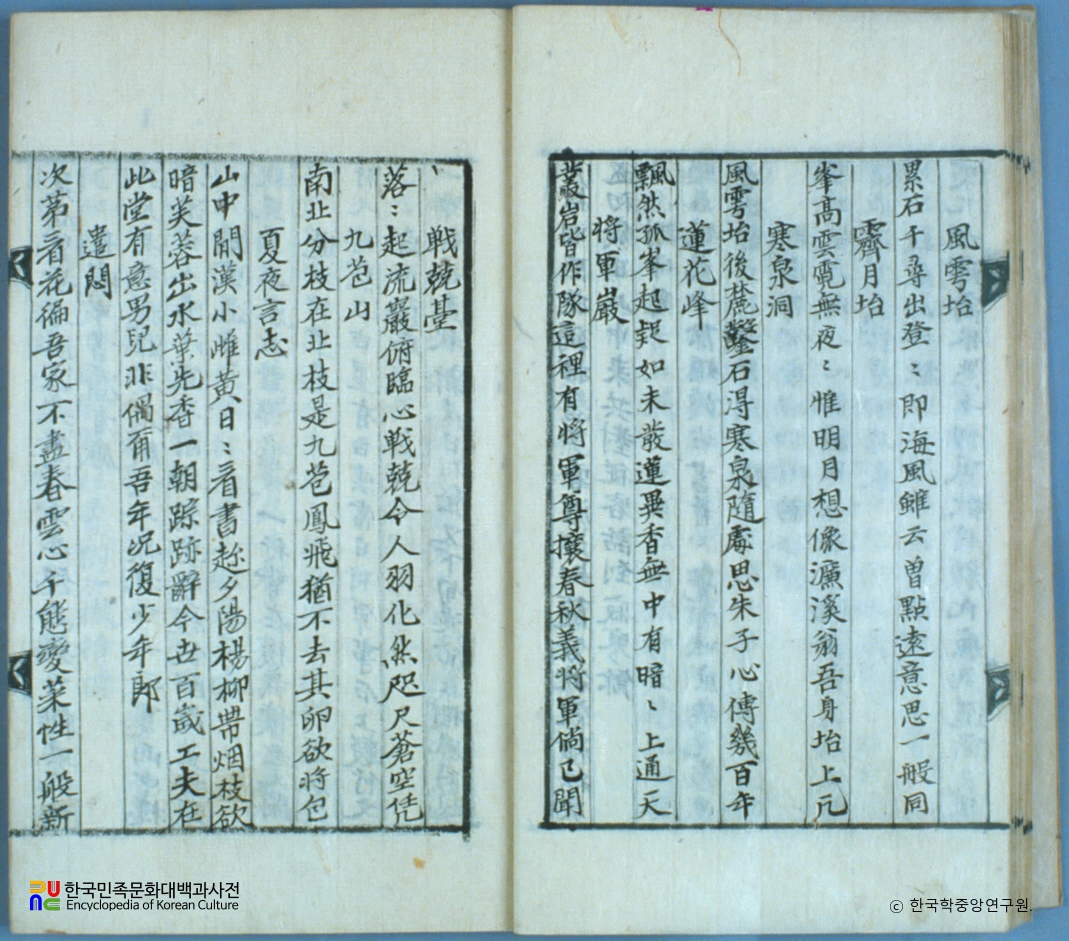 風雩坮
累石千尋出登〻即海風雖云曾點遠意思一般同
霽月坮
峯高雲霓無夜〻惟明月想像濂溪翁吾身坮上兀
寒泉洞
風雩坮後麓鑿石淂寒泉隨處思朱子心傳幾百年
蓮花峰
飄然孤峯起起如未散蓮異香無中有暗〻上通天
將軍巖
叢岩皆作隊這裡有將軍尊攘春秋義將軍倘已聞
戰兢臺
落〻起流巖俯臨心戰兢令人羽化然咫尺蒼空凭
九苞山
南北分枝在北枝是九苞鳳飛猶不去其卵欲將包
夏夜言志
山中開漢小雌黃日〻看書趂夕陽楊柳帶烟枝欲
暗芙蓉出水葉先香一朝踪跡辭今世百歲工夫在
此堂有意男兒非偶爾吾年况復少年郎
遣悶
次第看花徧吾家不盡春雲心千態變菜性一般新
한국민족문화대백과사전
Encyclopedia of Korean Culture
ⓒ 한국학중앙연구원.